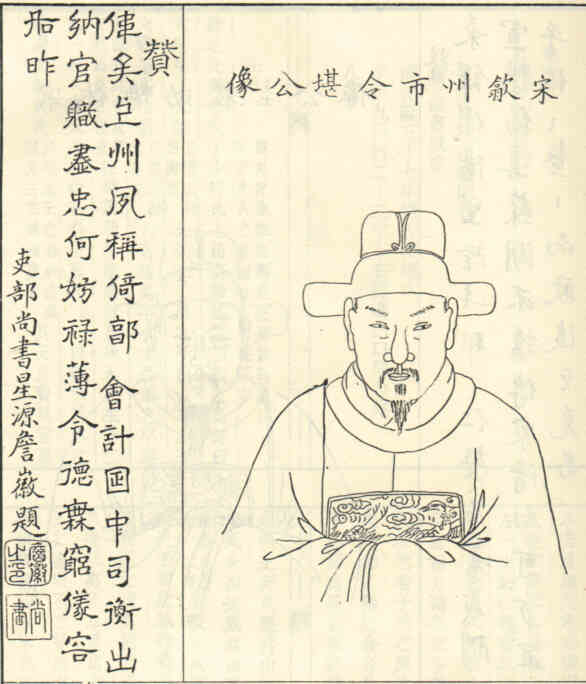 宋歙州市令堪公像
贊
矣上州夙稱倚郭會計中司衡出
納官職盡忠何妨祿薄令德無窮儀容
如昨
吏部尚書星源詹徽題
詹徽之印
尚書